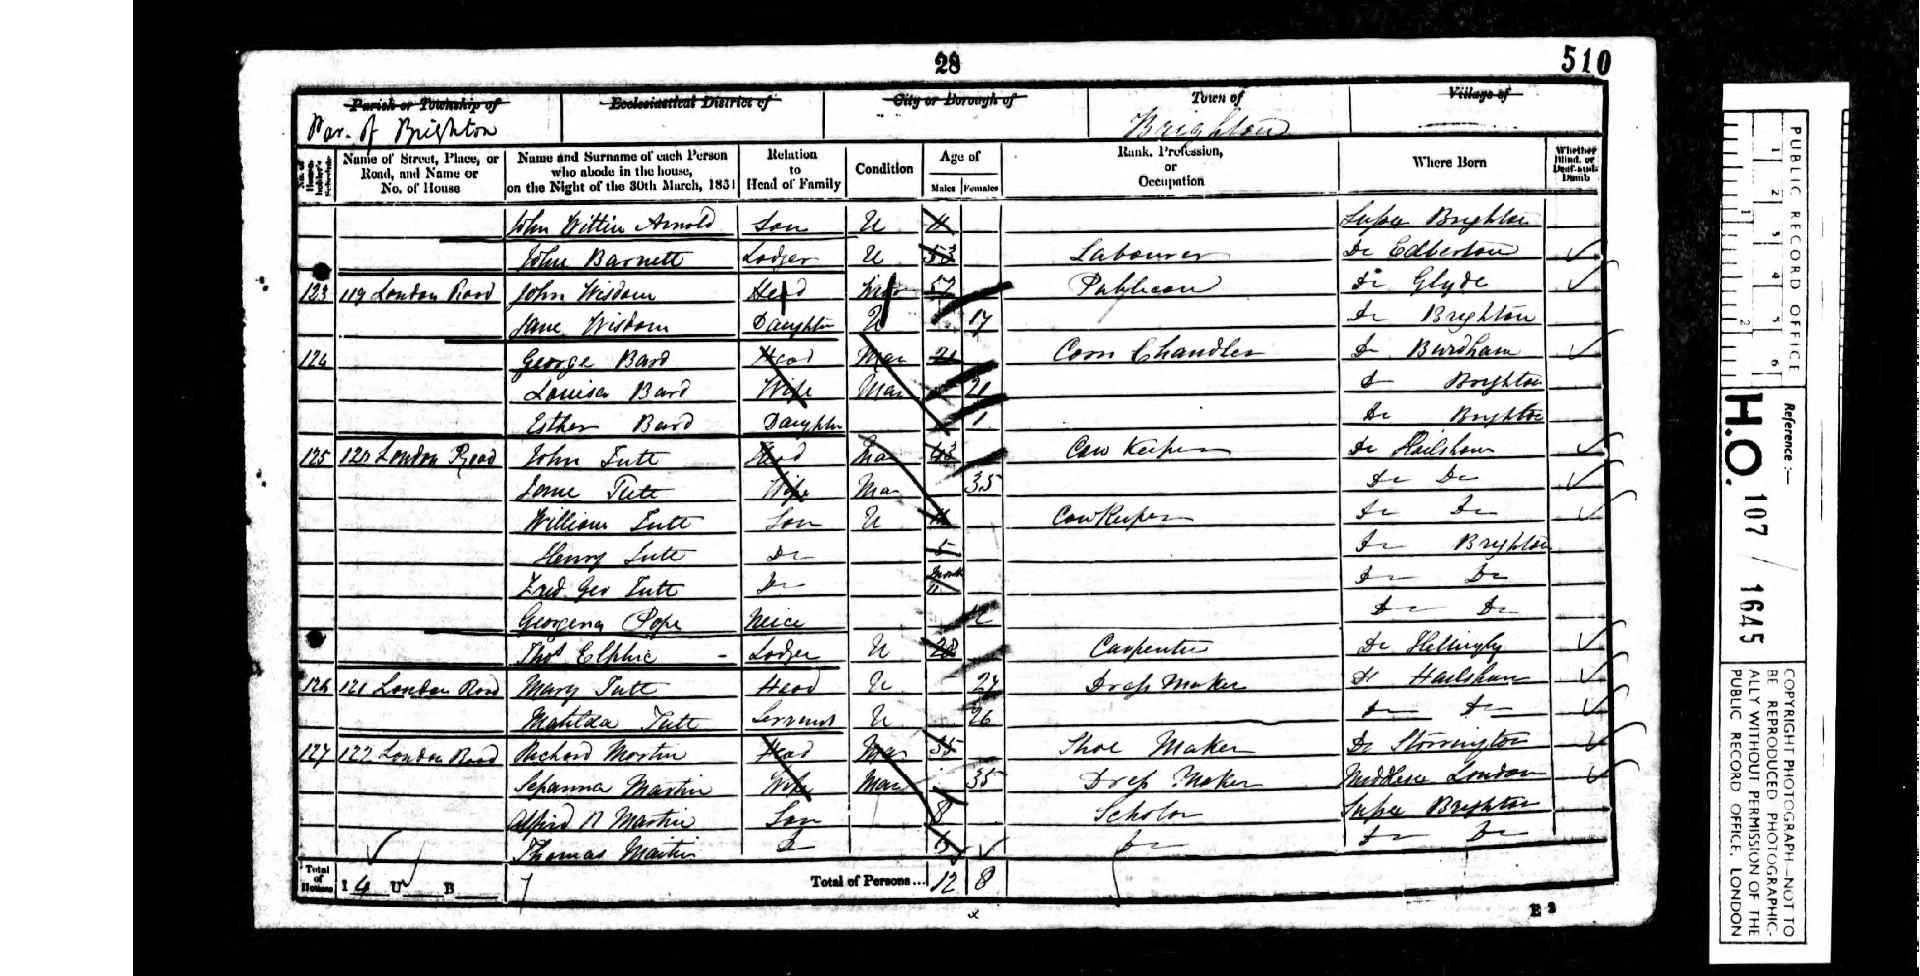 28
510
Parish or Township of
Ecclesiastical District of
City or Borough of
Town of
Village of
Par. of Brighton
Brighton
No. of Householder's Schedule
Name of Street, Place, or Road, and Name or No. of House
Name and Surname of each Person who abode in the house, on the Night of the 30th March, 1851
Relation to Head of Family
Condition
Age of
Males
Females
Rank, Profession, or Occupation
Where Born
Whether Blind, or Deaf-and-Dumb
John Arnold Son U Brighton
John Barnett Lodger U 53 Labourer Do Edberton
123 119 London Road John Wisdom Head 57 Publican Do Glyde
Jane Wisdom Daughter U 17 Do Brighton
124 George Bard Head Mar Corn Chandler Do Burdham
Louisa Bard Wife Mar 21 Do Brighton
Esther Bard Daughter 1 Do Brighton
125 120 London Road John Tutt Head Mar 43 Cow Keeper Do Hailsham
Jane Tutt Wife Mar 35 Do Do
William Tutt Son U Cow Keeper Do Do
Henry Tutt Do 5 Do Brighton
Fred Geo Tutt Do 11 Do Do
Georgena Pope Neice Do Do
Thos Elphic - Lodger U 28 Carpenter Do Hellingly
126 121 London Road Mary Tutt Head U Dress Maker Do Hailsham
Matilda Tutt Servant U 26 Do Do
127 122 London Road Richard Martin Head Mar 35 Shoe Maker Do Storrington
Martin Wife Mar 35 Dress Maker Middlesex London
Alfred R Martin Son 8 Scholar Brighton
Thomas Martin Do 6 Do Do Do
Total of Houses
I 4 U B
Total of Persons... 12 8
E 2
PUBLIC RECORD OFFICE
1 2 3 4 5 6
1 2
Reference :-
H.O. 107 / 1645
COPYRIGHT PHOTOGRAPH—NOT TO BE REPRODUCED PHOTOGRAPHICALLY WITHOUT PERMISSION OF THE PUBLIC RECORD OFFICE, LONDON